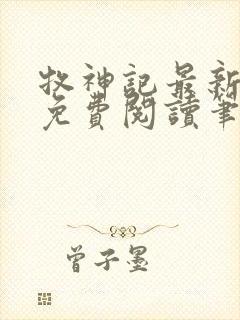 牧神記最新
免費閱讀筆
曾子墨